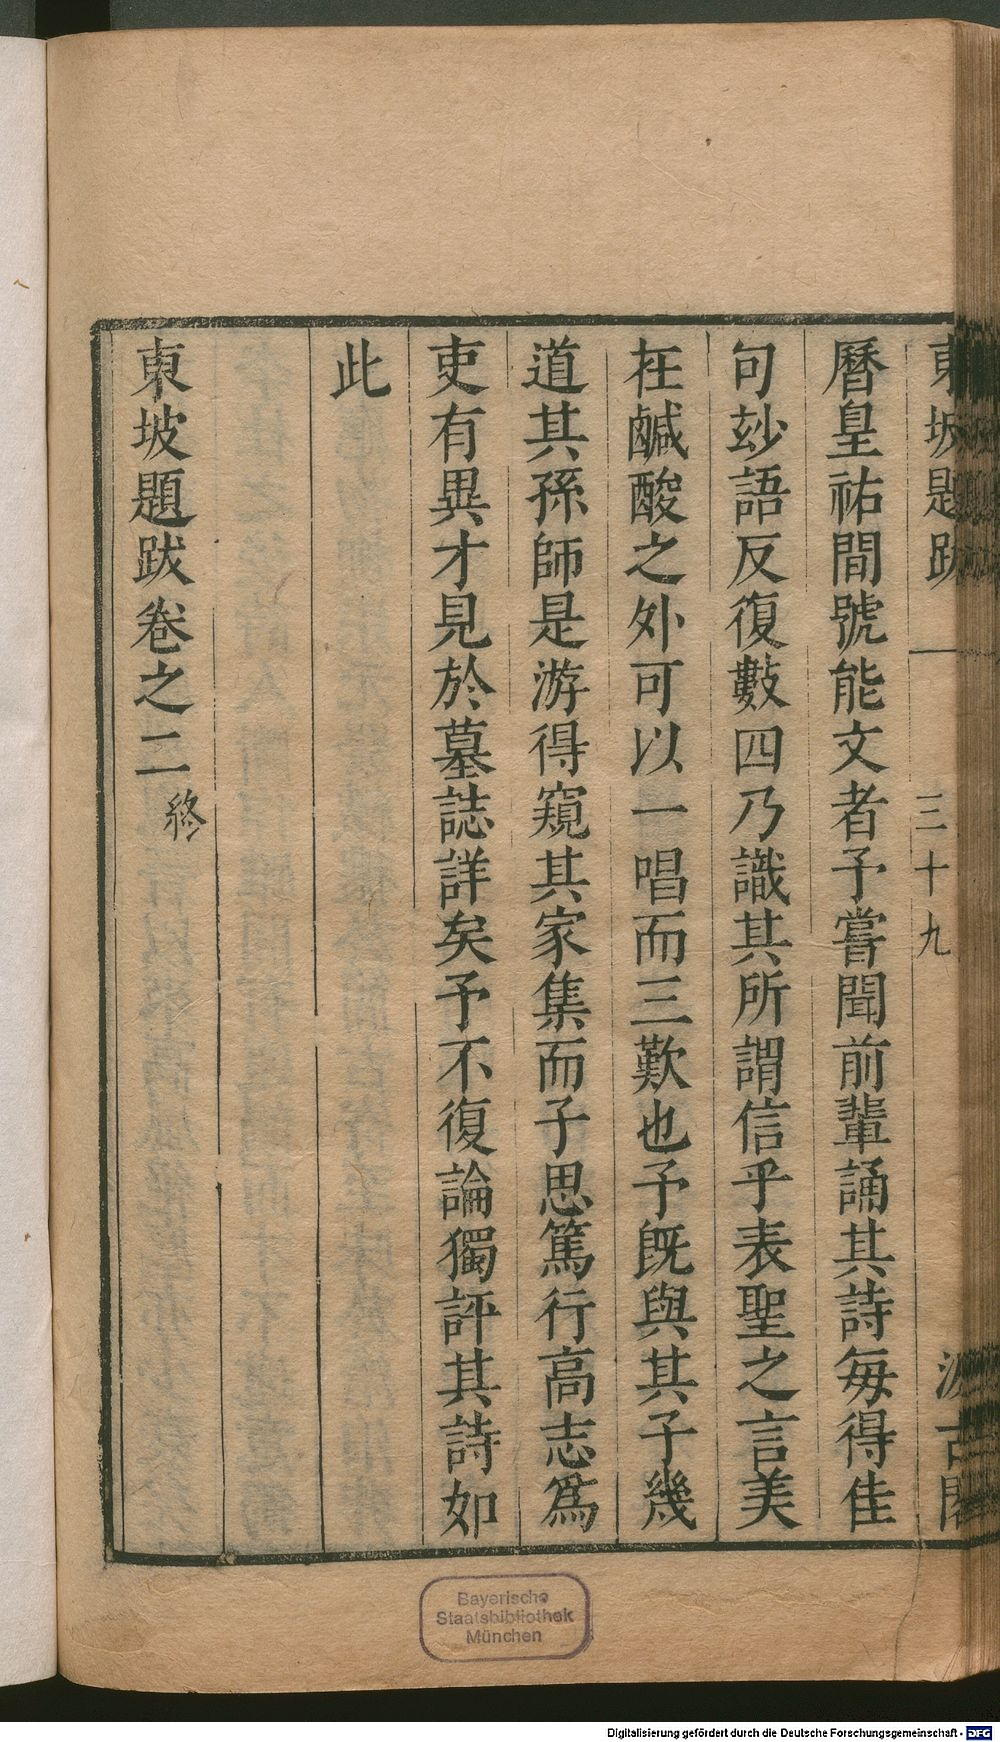 東坡題跋 三十九 汲古閣
曆皇祐間號能文者予嘗聞前輩誦其詩每得佳
句玅語反復數四乃識其所謂信乎表聖之言美
在鹹酸之外可以一唱而三歎也予旣與其子幾
道其孫師是游得窺其家集而子思篤行高志爲
吏有異才見於墓誌詳矣予不復論獨評其詩如
此
東坡題跋卷之二終
Bayerische
Staatsbibliothek
München
Digitalisierung gefördert durch die Deutsche Forschungsgemeinschaft - DFG